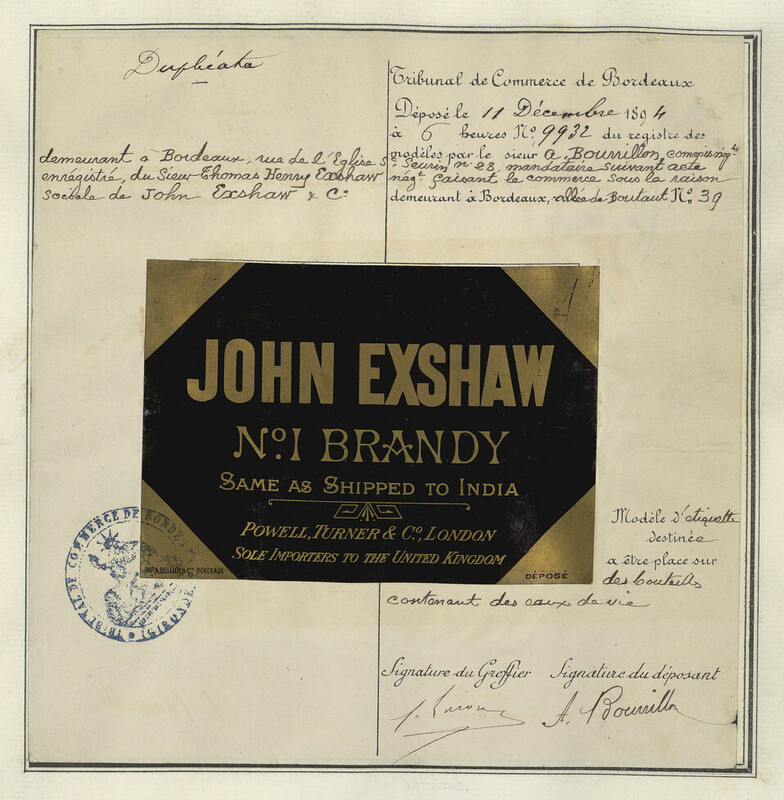 Duplicata
Tribunal de Commerce de Bordeaux
Déposé le 11 Décembre 1894
à 6 heures No. 9932 du registre des
modèles par le sieur A. Bourrillon, commis négt.
demeurant à Bordeaux, rue de l'Eglise St. Seurin n. 28, mandataire suivant acte
enrégistré, du Sieur Thomas Henry Exshaw négt. faisant le commerce sous la raison
sociale de John Exshaw & Co. demeurant à Bordeaux, allée de Boutaut No. 39
JOHN EXSHAW
No. 1 BRANDY
SAME AS SHIPPED TO INDIA
POWELL, TURNER & Co., LONDON
SOLE IMPORTERS TO THE UNITED KINGDOM
IMP. A. BELLIER & Cie. BORDEAUX
DÉPOSÉ
TRIBUNAL DE COMMERCE DE BORDEAUX
(GIRONDE)
Modèle d'étiquette
destinée
a être place sur
des bouteilles
contenant des eaux de vie
Signature du Greffier Signature du déposant
A. Bourrillon